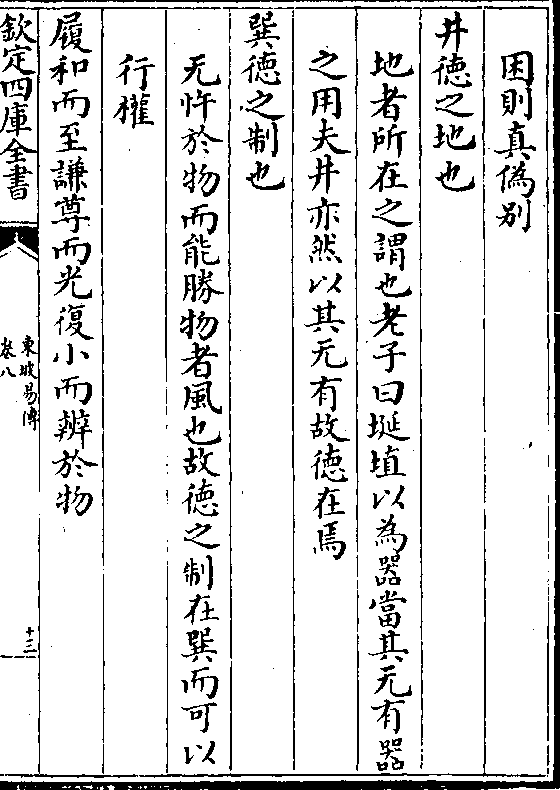 困則真偽别
井徳之地也
地者所在之謂也老子曰埏埴以為器當其无有器
之用夫井亦然以其无有故徳在焉
巽徳之制也
无忤於物而能勝物者風也故徳之制在巽而可以
行權
履和而至謙尊而光復小而辨於物
欽定四庫全書
東坡易傳
卷八
十三